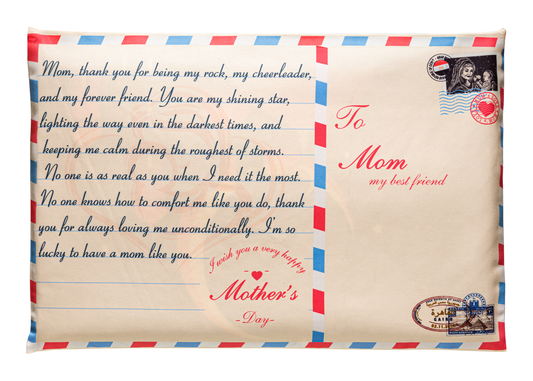 Mom, thank you for being my rock, my cheerleader,
and my forever friend. You are my shining star,
lighting the way even in the darkest times, and
keeping me calm during the roughest of storms.
No one is as real as you when I need it the most.
No one knows how to comfort me like you do, thank
you for always loving me unconditionally. I'm so
lucky to have a mom like you.
I wish you a very happy
Mother's
-Day-
To
Mom
my best friend
القاهرة
CAIRO